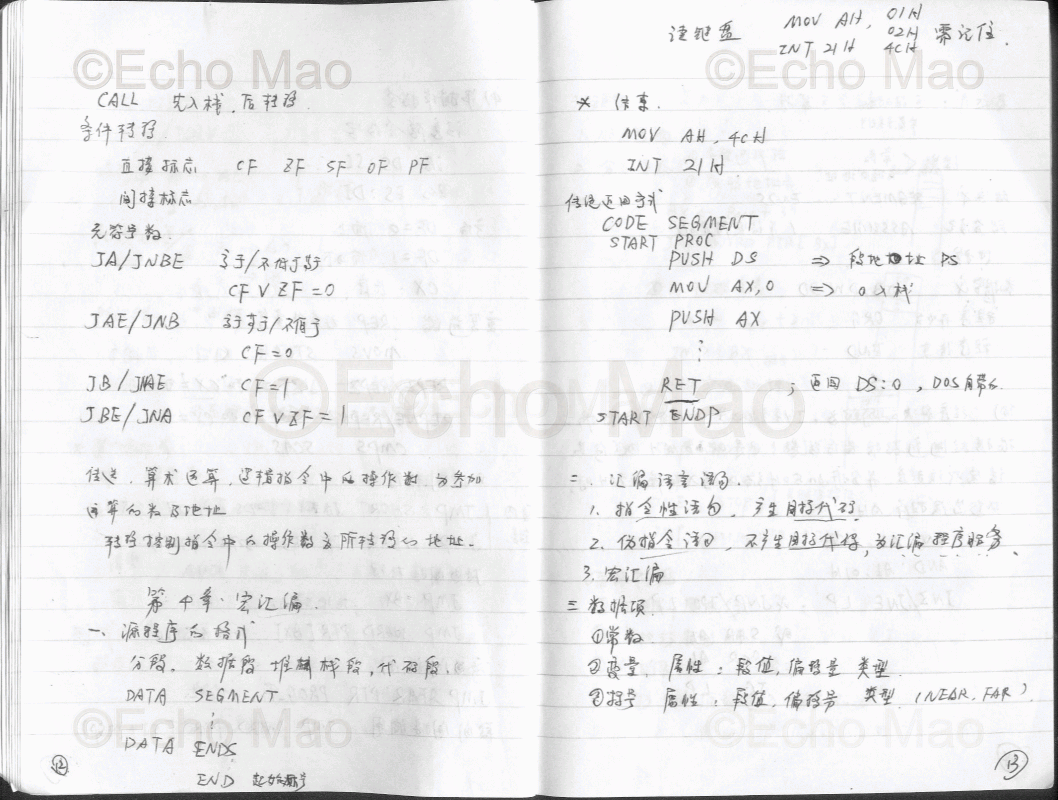 ©Echo Mao
CALL 先入栈,后转移
条件转移
直接标志 CF ZF SF OF PF
间接标志
无符号数:
JA/JNBE 高于/不低于等于
CF∨ZF=0
JAE/JNB 高于等于/不低于
CF=0
JB/JNAE CF=1
JBE/JNA CF∨ZF=1
传送,算术运算,逻辑指令中的操作数为参加
运算的数及地址
转移控制指令中的操作数为所转移的地址.
第十章 宏汇编
一、源程序的格式
分段,数据段 堆栈段,代码段.
DATA SEGMENT
⋮
DATA ENDS
END 起始标号
©Echo Mao
12
读键盘 MOV AH, 01H
02H 需记住.
INT 21H 4CH
©Echo Mao
* 结束.
MOV AH, 4CH
INT 21H
传统返回方式
CODE SEGMENT
START PROC
PUSH DS ⇒ 段地址 DS
MOV AX,0 ⇒ 0入栈
PUSH AX
⋮
©Echo Mao
RET ; 返回 DS:0, DOS
START ENDP
二 汇编语言语句.
1. 指令性语句,产生目标代码.
2. 伪指令语句,不产生目标代码,为汇编程序服务.
3. 宏汇编
三 数据项.
①常数
②变量,属性:段值,偏移量 类型.
③标号 属性:段值,偏移量 类型 (NEAR, FAR)
©Echo Mao
13